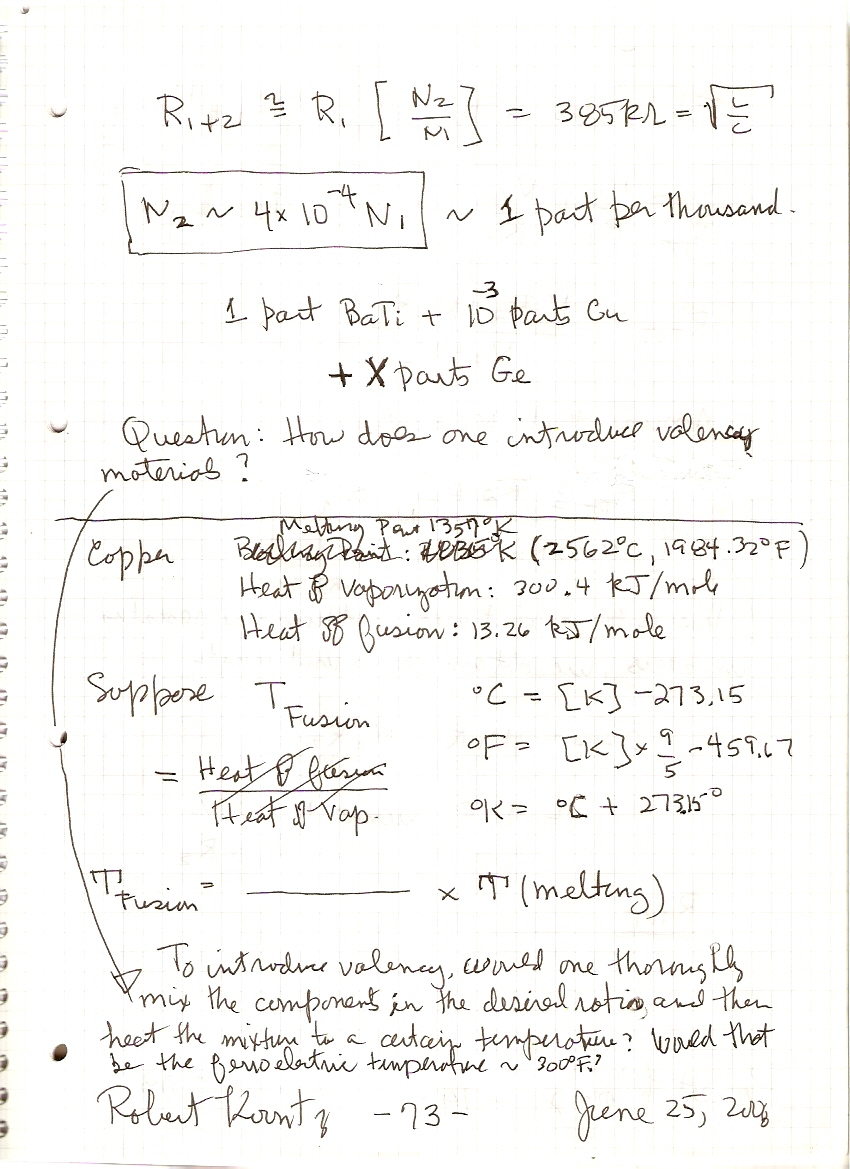 R₁₊₂ ≅ R₁ [N₂/N₁] = 385kΩ = √(L/C)
N₂ ~ 4x10⁻⁴ N₁ ~ 1 part per thousand.
1 part BaTi + 10⁻³ parts Cu
+ X parts Ge
Question: How does one introduce valency
materials?
Melting Point 1357°K
Copper Boiling Point: °K (2562°C, 1984.32°F)
Heat of Vaporization: 300.4 kJ/mole
Heat of fusion: 13.26 kJ/mole
Suppose T Fusion °C = [K] -273.15
= Heat of fusion / Heat of Vap. °F = [K] x 9/5 -459.67
°K = °C + 273.15°
T Fusion = ________ x T (melting)
To introduce valency, would one thoroughly
mix the components in the desired ratio, and then
heat the mixture to a certain temperature? Would that
be the ferroelectric temperature ~ 300°F?
Robert Koontz -73- June 25,